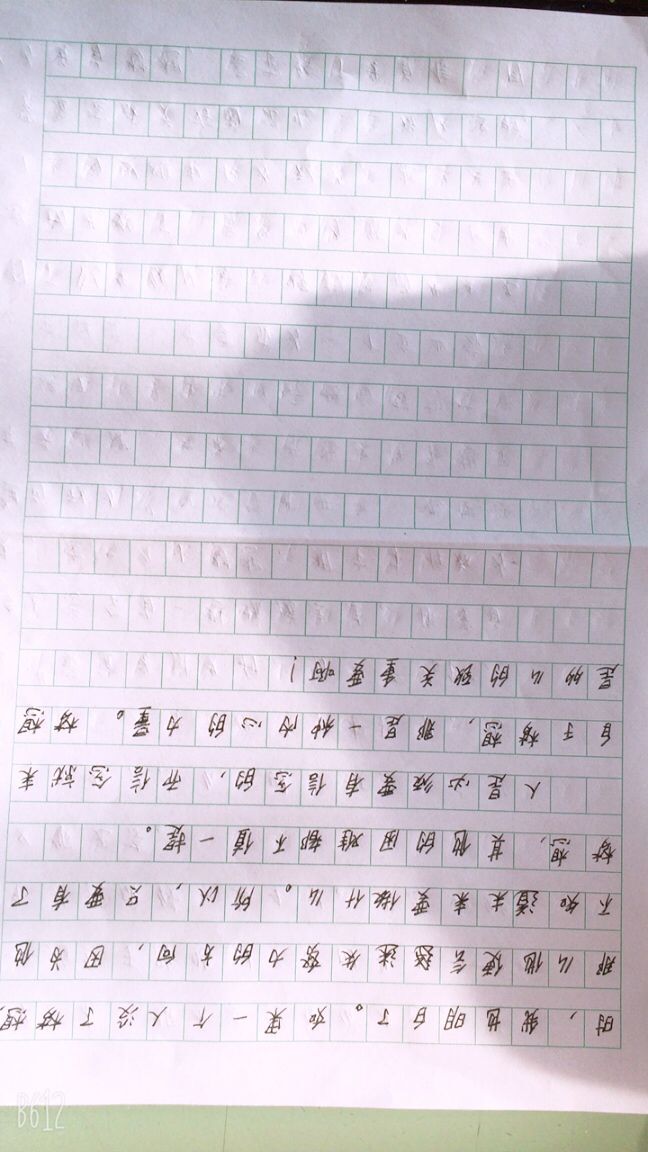 时，我也明白了。如果一个人没了梦想，
那么他便会迷失努力的方向，因为他
不知道未来要做什么。所以，只要有了
梦想，其他的困难都不值一提。
人是必须要有信念的，而信念就来
自于梦想，那是一种内心的力量。梦想
是多么的致关重要啊！
B612